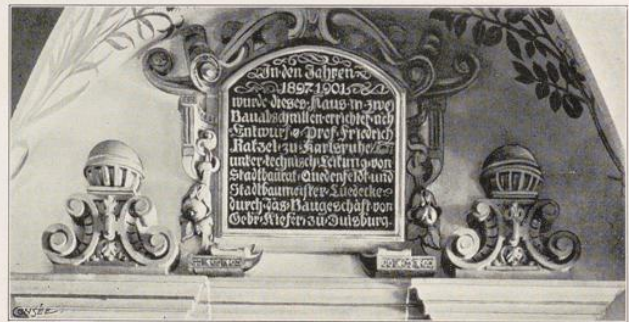 In den Jahren
1897-1901
wurde dieses Haus in zwei
Bauabschnitten errichtet nach
Entwurf v. Prof. Friedrich
Ratzel zu Karlsruhe
unter technisch. Leitung von
Stadtbaurat Quedenfeldt und
Stadtbaumeister Luedecke
durch das Baugeschäft von
Gebr. Kiefer zu Duisburg.
CONSÉE